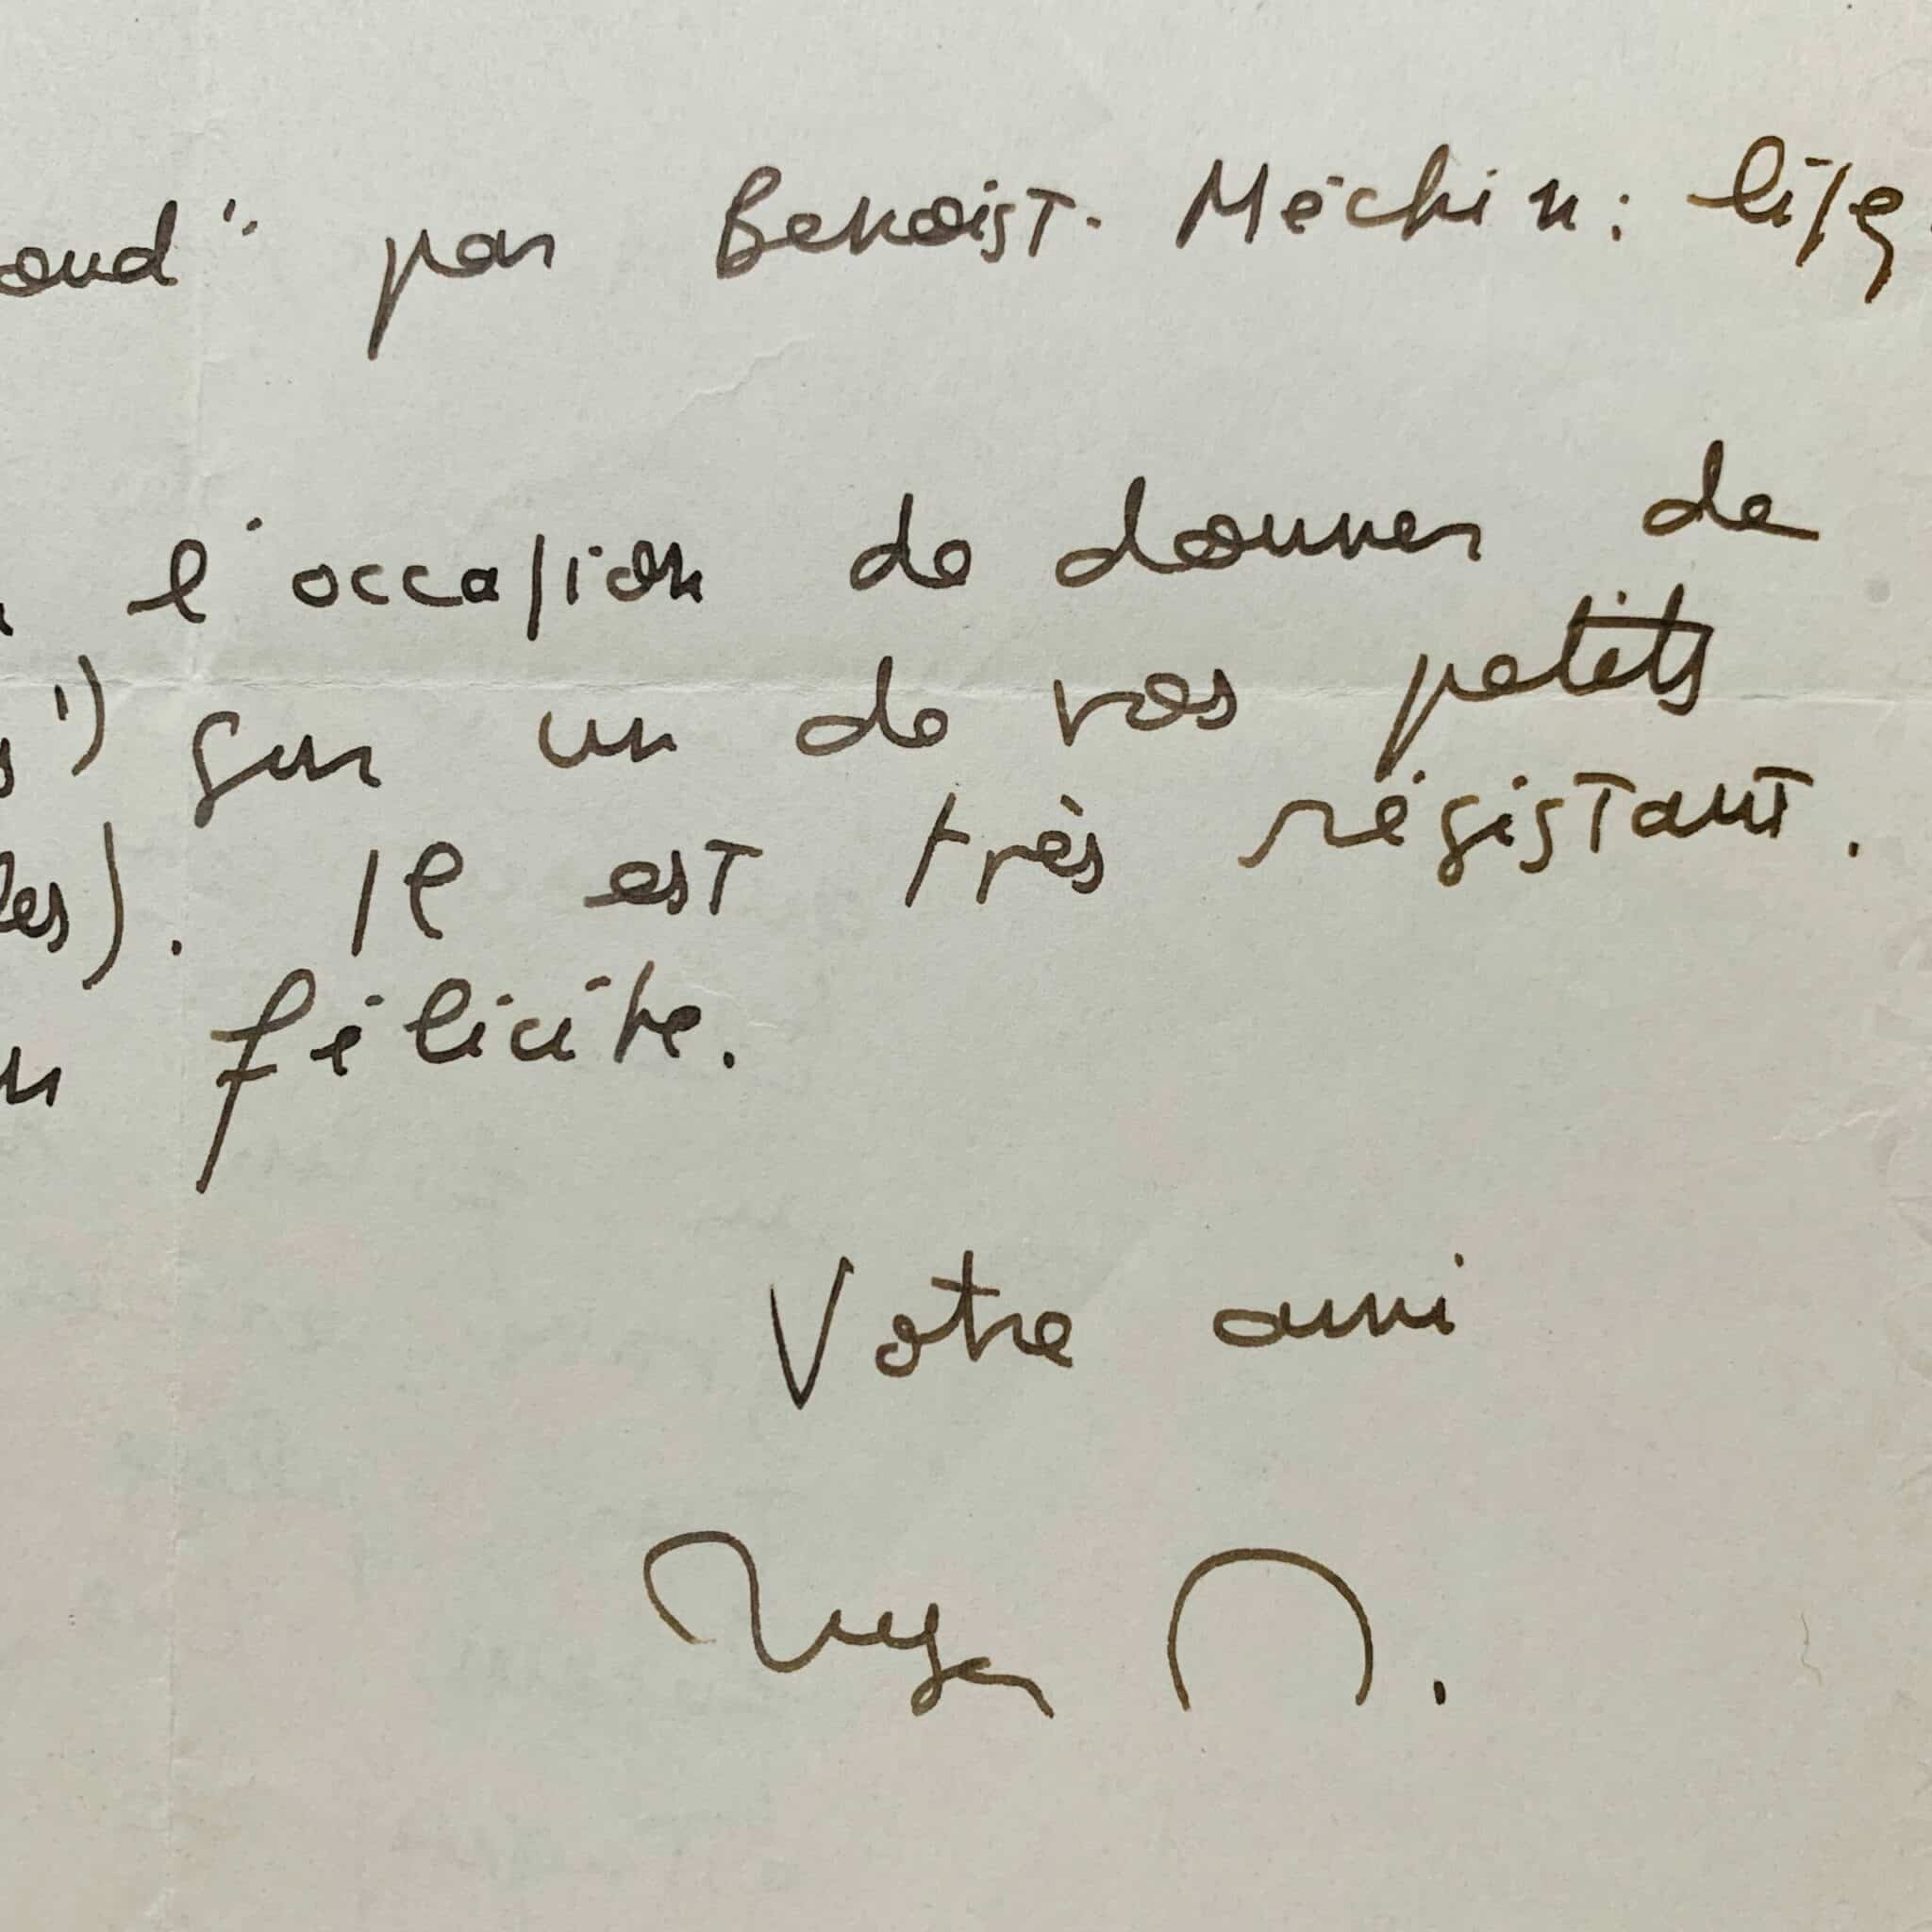 oud" par Benoist-Méchin: lisez
l'occasion de donner de
s") sur un de vos petits
les). Il est très résistant.
n félicite.
Votre ami